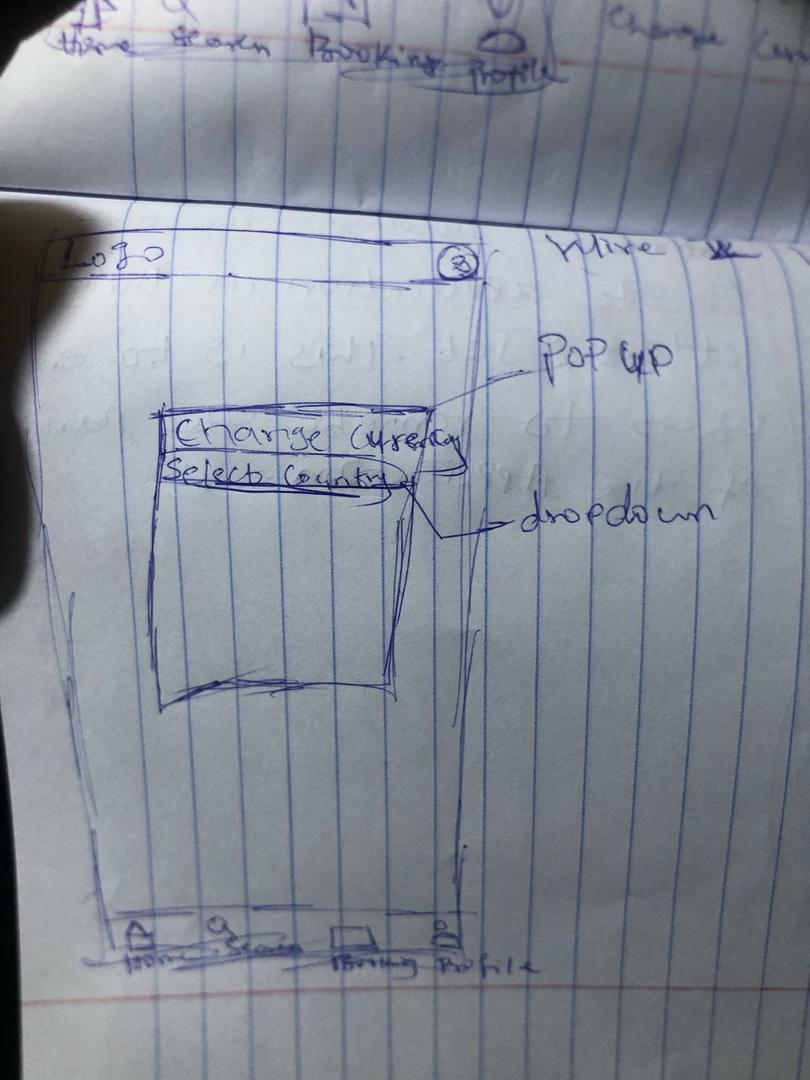 Home Search Booking Profile
Change
Logo
Wire
Pop up
Change Currency
Select Country
dropdown
Home Search Booking Profile